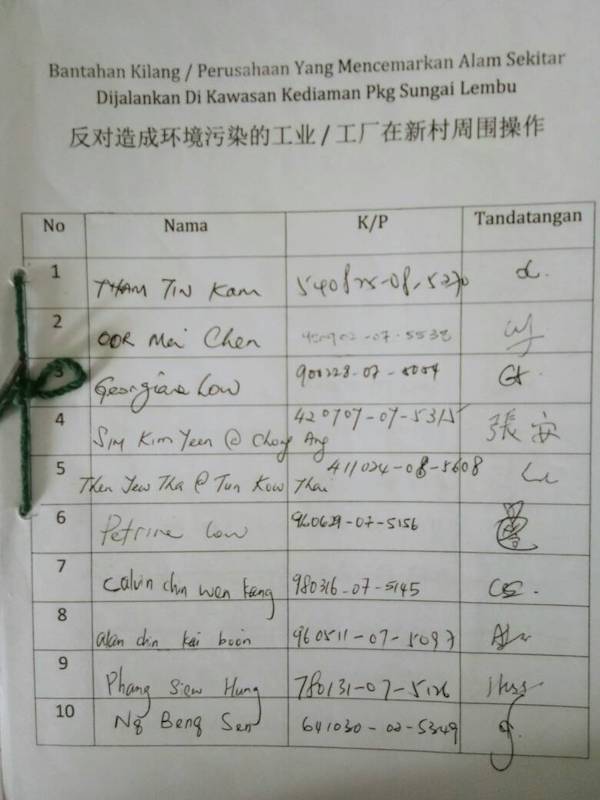 Bantahan Kilang / Perusahaan Yang Mencemarkan Alam Sekitar
Dijalankan Di Kawasan Kediaman Pkg Sungai Lembu
反对造成环境污染的工业 / 工厂在新村周围操作
No Nama K/P Tandatangan
1 THAM TIN Kam 540825-08-5270
2 OOR Mei Chen
3 Georgiana Low
4 SIM Kim Yeen @ Chong Ang 420707-07-5315 張安
5 Then Yew Tha @ Tun Kow Thai 411024-08-5608
6 Petrine Low 960629-07-5156
7 Calvin chin wen keng 980316-07-5145
8 alan chin kai boon 960511-07-5097
9 Phang Siew Hung 780131-07-5126
10 Ng Beng Sen 641030-02-5349